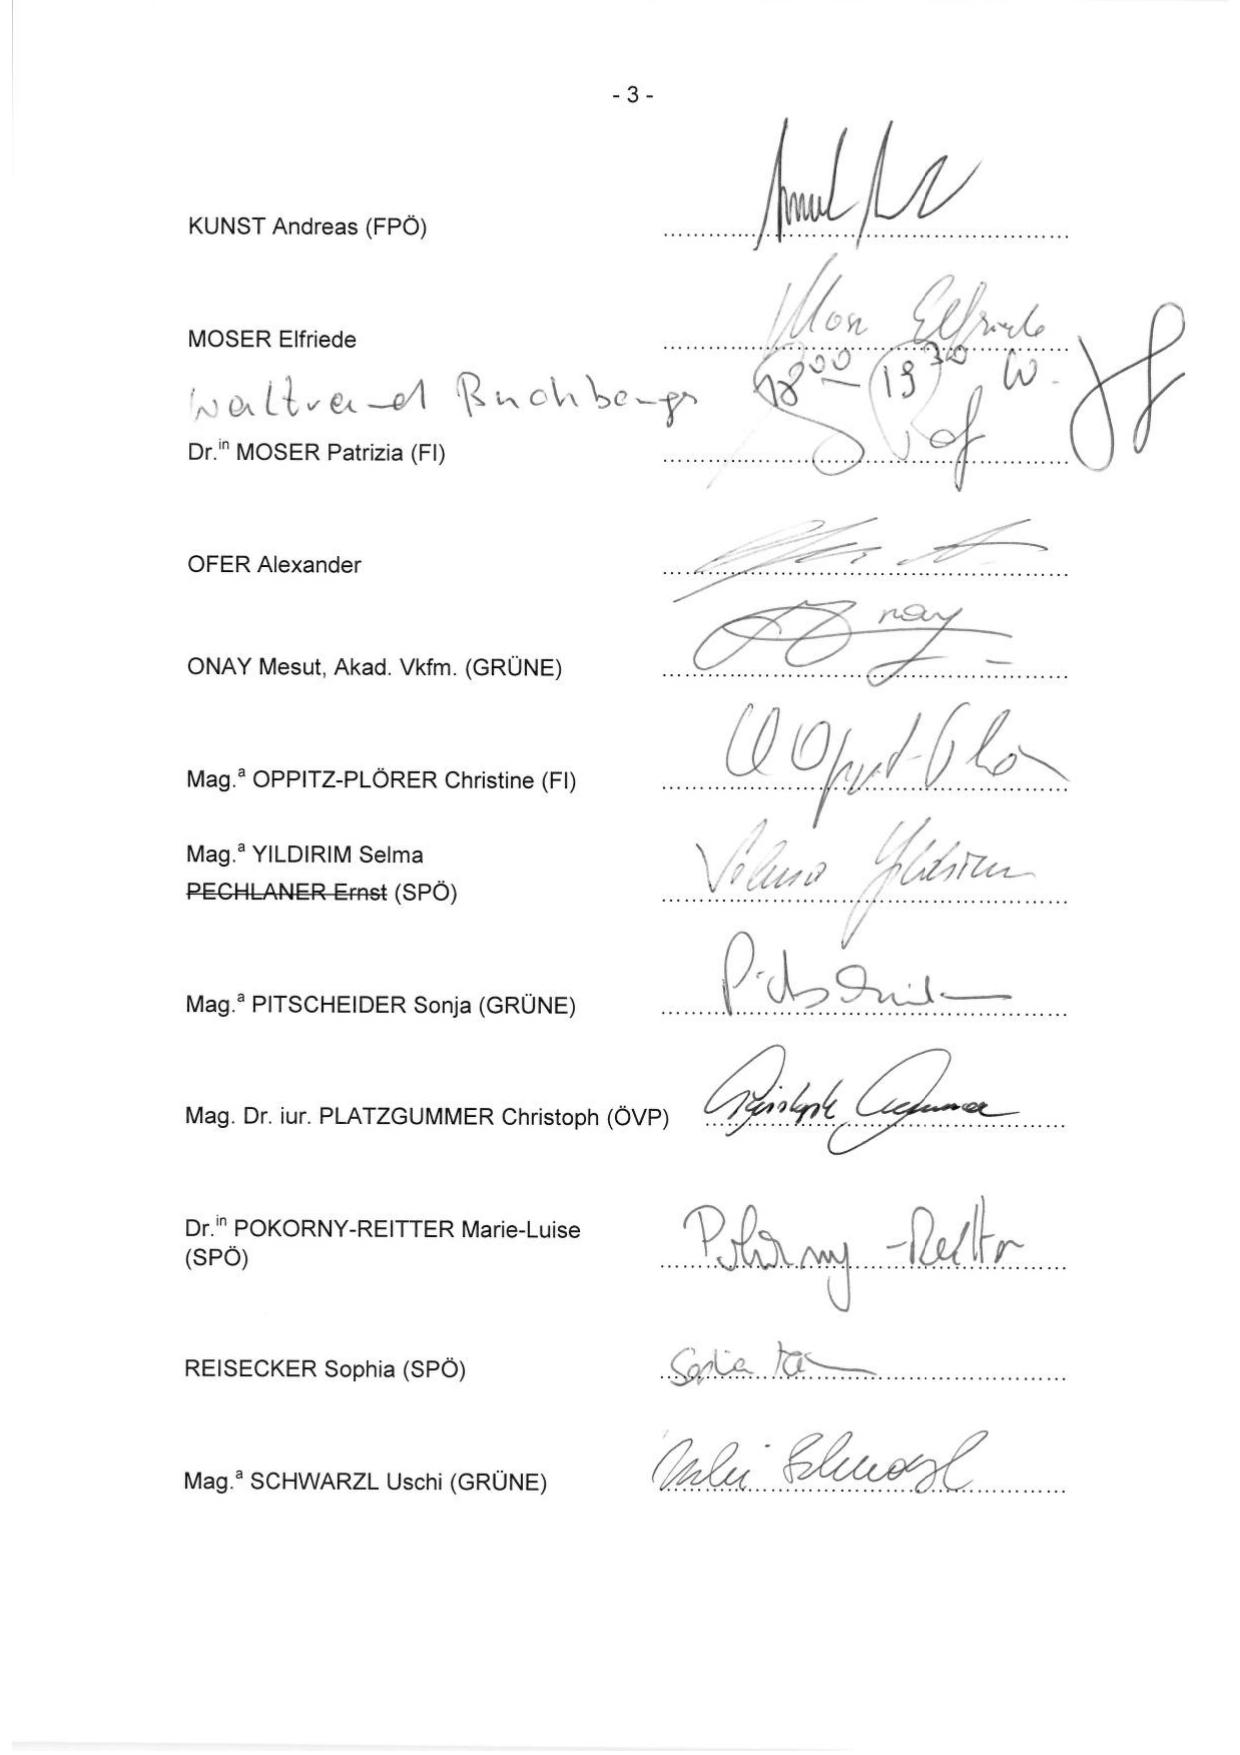 - 3 -
KUNST Andreas (FPÖ)
MOSER Elfriede
Elfriede
Waltraud Buchberger 18⁰⁰ – 19³⁰ W.
Dr.ⁱⁿ MOSER Patrizia (FI)
OFER Alexander
ONAY Mesut, Akad. Vkfm. (GRÜNE)
Mag.ᵃ OPPITZ-PLÖRER Christine (FI)
Mag.ᵃ YILDIRIM Selma
Selma Yildirim
PECHLANER Ernst (SPÖ)
Mag.ᵃ PITSCHEIDER Sonja (GRÜNE)
Mag. Dr. iur. PLATZGUMMER Christoph (ÖVP) Christoph
Dr.ⁱⁿ POKORNY-REITTER Marie-Luise
(SPÖ) Pokorny-Reitter
REISECKER Sophia (SPÖ) Sophia
Mag.ᵃ SCHWARZL Uschi (GRÜNE) Schwarzl